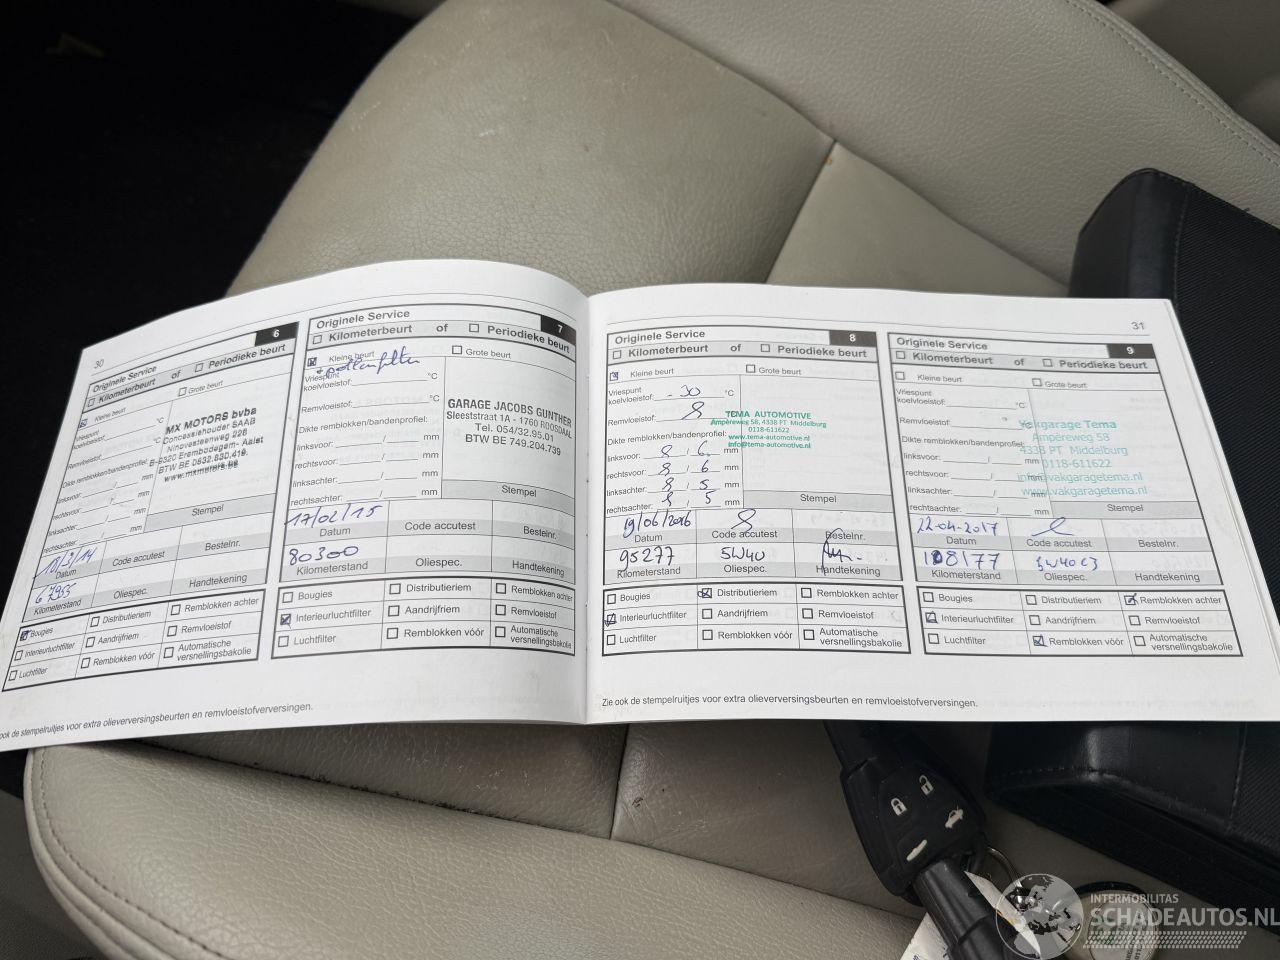 30
Originele Service 6
Kilometerbeurt of Periodieke beurt
Kleine beurt Grote beurt
Vriespunt
koelvloeistof: °C
Remvloeistof: °C
Dikte remblokken/bandenprofiel:
linksvoor: / mm
rechtsvoor: / mm
linksachter: / mm
rechtsachter: / mm
MX MOTORS bvba
Concessiehouder SAAB
Ninovesteenweg 226
B-9320 Erembodegem- Aalst
BTW BE 0632.630.419.
Stempel
Datum Code accutest Bestelnr.
Kilometerstand Oliespec. Handtekening
Bougies Distributieriem Remblokken achter
Interieurluchtfilter Aandrijfriem Remvloeistof
Luchtfilter Remblokken vóór Automatische
versnellingsbakolie
ook de stempelruitjes voor extra olieverversingsbeurten en remvloeistofverversingen.
Originele Service 7
Kilometerbeurt of Periodieke beurt
Kleine beurt Grote beurt
Vriespunt
koelvloeistof: °C
Remvloeistof: °C
Dikte remblokken/bandenprofiel:
linksvoor: / mm
rechtsvoor: / mm
linksachter: / mm
rechtsachter: / mm
GARAGE JACOBS GUNTHER
Sleeststraat 1A - 1760 ROOSDAAL
Tel. 054/32.95.01
BTW BE 749.204.739
Stempel
17/02/15
Datum Code accutest Bestelnr.
80300
Kilometerstand Oliespec. Handtekening
Bougies Distributieriem Remblokken achter
Interieurluchtfilter Aandrijfriem Remvloeistof
Luchtfilter Remblokken vóór Automatische
versnellingsbakolie
31
Originele Service 8
Kilometerbeurt of Periodieke beurt
Kleine beurt Grote beurt
Vriespunt
koelvloeistof: -30 °C
Remvloeistof: °C
Dikte remblokken/bandenprofiel:
linksvoor: 8 / 6 mm
rechtsvoor: 8 / 6 mm
linksachter: 8 / 5 mm
rechtsachter: 8 / 5 mm
TEMA AUTOMOTIVE
Ampèreweg 58, 4338 PT Middelburg
0118-611622
www.tema-automotive.nl
info@tema-automotive.nl
Stempel
19/06/2016
Datum Code accutest Bestelnr.
95277 5W40
Kilometerstand Oliespec. Handtekening
Bougies Distributieriem Remblokken achter
Interieurluchtfilter Aandrijfriem Remvloeistof
Luchtfilter Remblokken vóór Automatische
versnellingsbakolie
Zie ook de stempelruitjes voor extra olieverversingsbeurten en remvloeistofverversingen.
Originele Service 9
Kilometerbeurt of Periodieke beurt
Kleine beurt Grote beurt
Vriespunt
koelvloeistof: °C
Remvloeistof: °C
Dikte remblokken/bandenprofiel:
linksvoor: / mm
rechtsvoor: / mm
linksachter: / mm
rechtsachter: / mm
Vakgarage Tema
Ampèreweg 58
4338 PT Middelburg
0118-611622
info@vakgaragetema.nl
www.vakgaragetema.nl
Stempel
22-04-2017
Datum Code accutest Bestelnr.
108177 5W40 C3
Kilometerstand Oliespec. Handtekening
Bougies Distributieriem Remblokken achter
Interieurluchtfilter Aandrijfriem Remvloeistof
Luchtfilter Remblokken vóór Automatische
versnellingsbakolie
INTERMOBILITAS
SCHADEAUTOS.NL